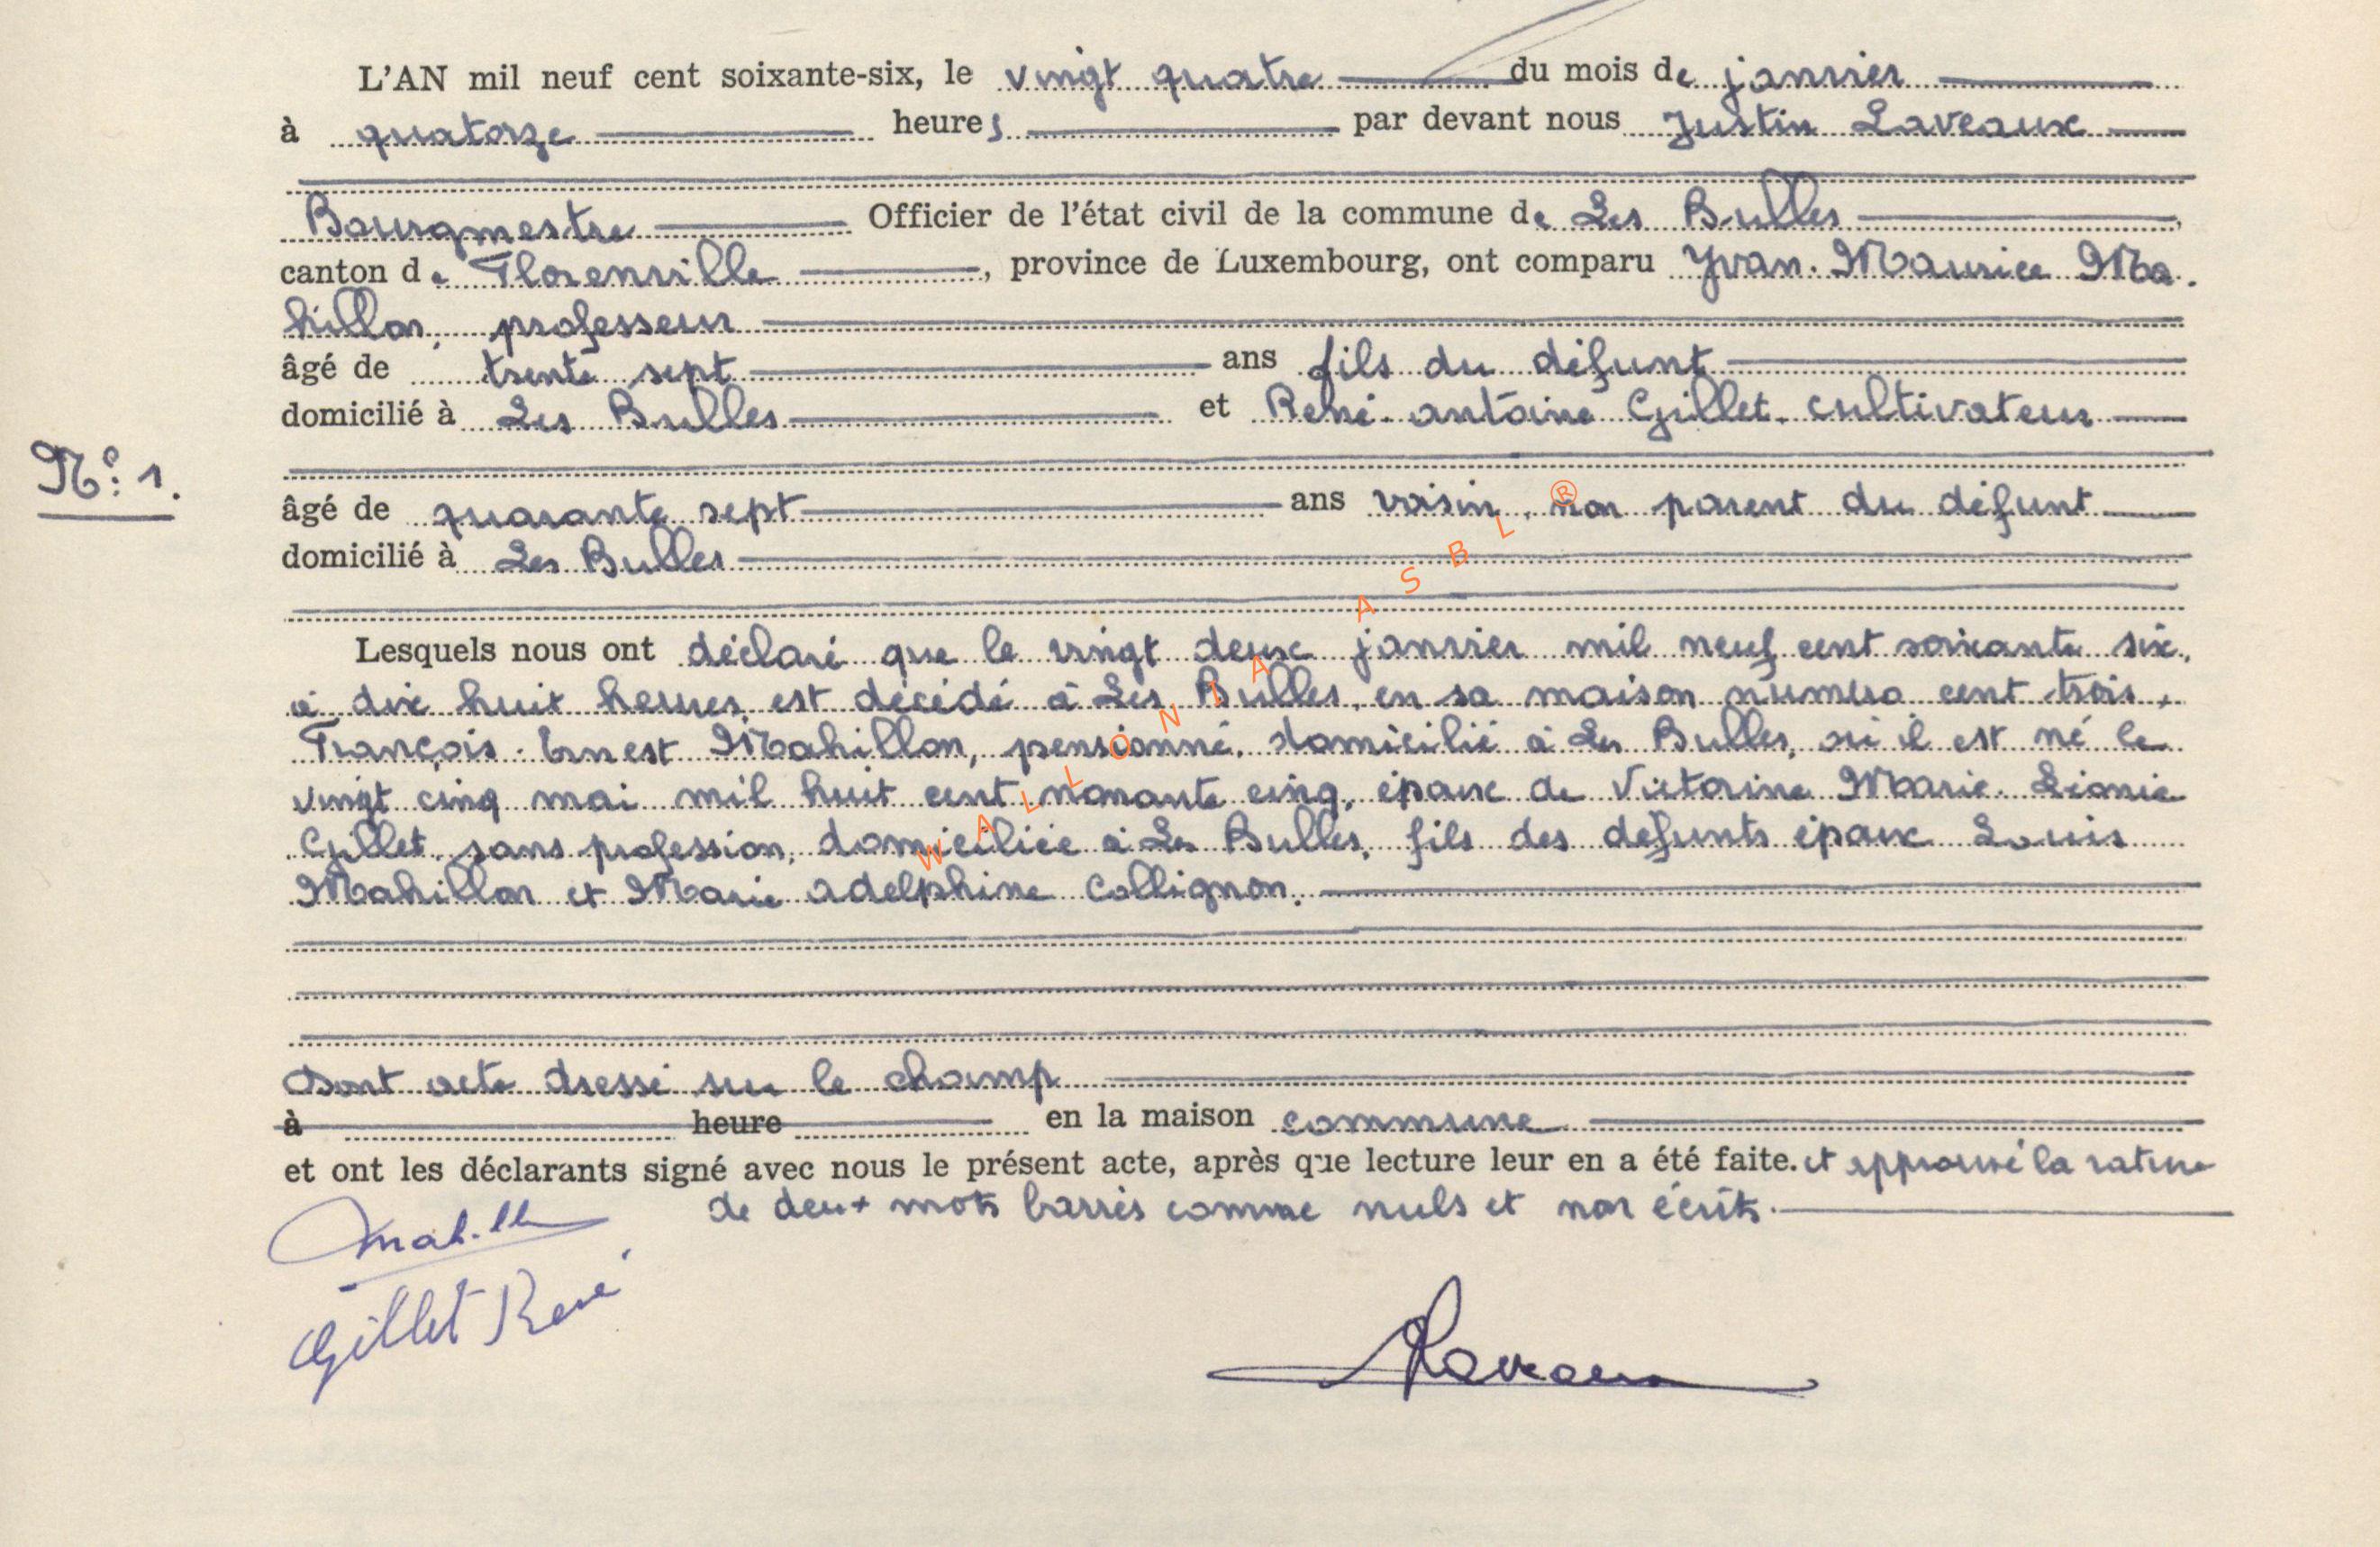 L'AN mil neuf cent soixante-six, le vingt quatre du mois de janvier
à quatorze heures par devant nous Justin Laveaux
Bourgmestre Officier de l'état civil de la commune de Les Bulles,
canton de Florenville, province de Luxembourg, ont comparu Yvan. Maurice Ma.
hillon, professeur
âgé de trente sept ans fils du défunt
domicilié à Les Bulles et René. antoine Gillet. cultivateur
N°: 1.
âgé de quarante sept ans voisin, non parent du défunt
domicilié à Les Bulles
Lesquels nous ont déclaré que le vingt deux janvier mil neuf cent soixante six,
à dix huit heures, est décédé à Les Bulles, en sa maison numéro cent trois,
François. Ernest Mahillon, pensionné, domicilié à Les Bulles, où il est né le
vingt cinq mai mil huit cent nonante cinq, époux de Victorine Marie. Léonie
Gillet, sans profession, domiciliée à Les Bulles, fils des défunts époux Louis
Mahillon et Marie adelphine Collignon.
Dont acte dressé sur le champ
à heure en la maison commune
et ont les déclarants signé avec nous le présent acte, après que lecture leur en a été faite. et approuvé la rature
de deux mots barrés comme nuls et non écrits.
Mahillon
Gillet René
Laveaux
WALLONIA ASBL ®